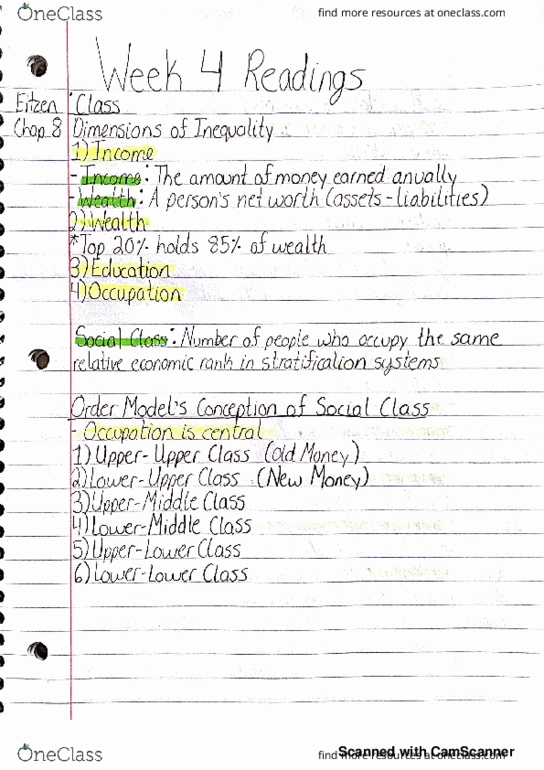 OneClass
find more resources at oneclass.com
Week 4 Readings
Eitzen Class
Chap. 8 Dimensions of Inequality
1) Income
- Income: The amount of money earned anually
- Wealth: A person's net worth (assets - liabilities)
2) Wealth
*Top 20% holds 85% of wealth
3) Education
4) Occupation
Social Class: Number of people who occupy the same
relative economic rank in stratification systems
Order Model's Conception of Social Class
- Occupation is central
1) Upper-Upper Class (Old Money)
2) Lower-Upper Class (New Money)
3) Upper-Middle Class
4) Lower-Middle Class
5) Upper-Lower Class
6) Lower-Lower Class
OneClass
find more resources at oneclass.com
Scanned with CamScanner